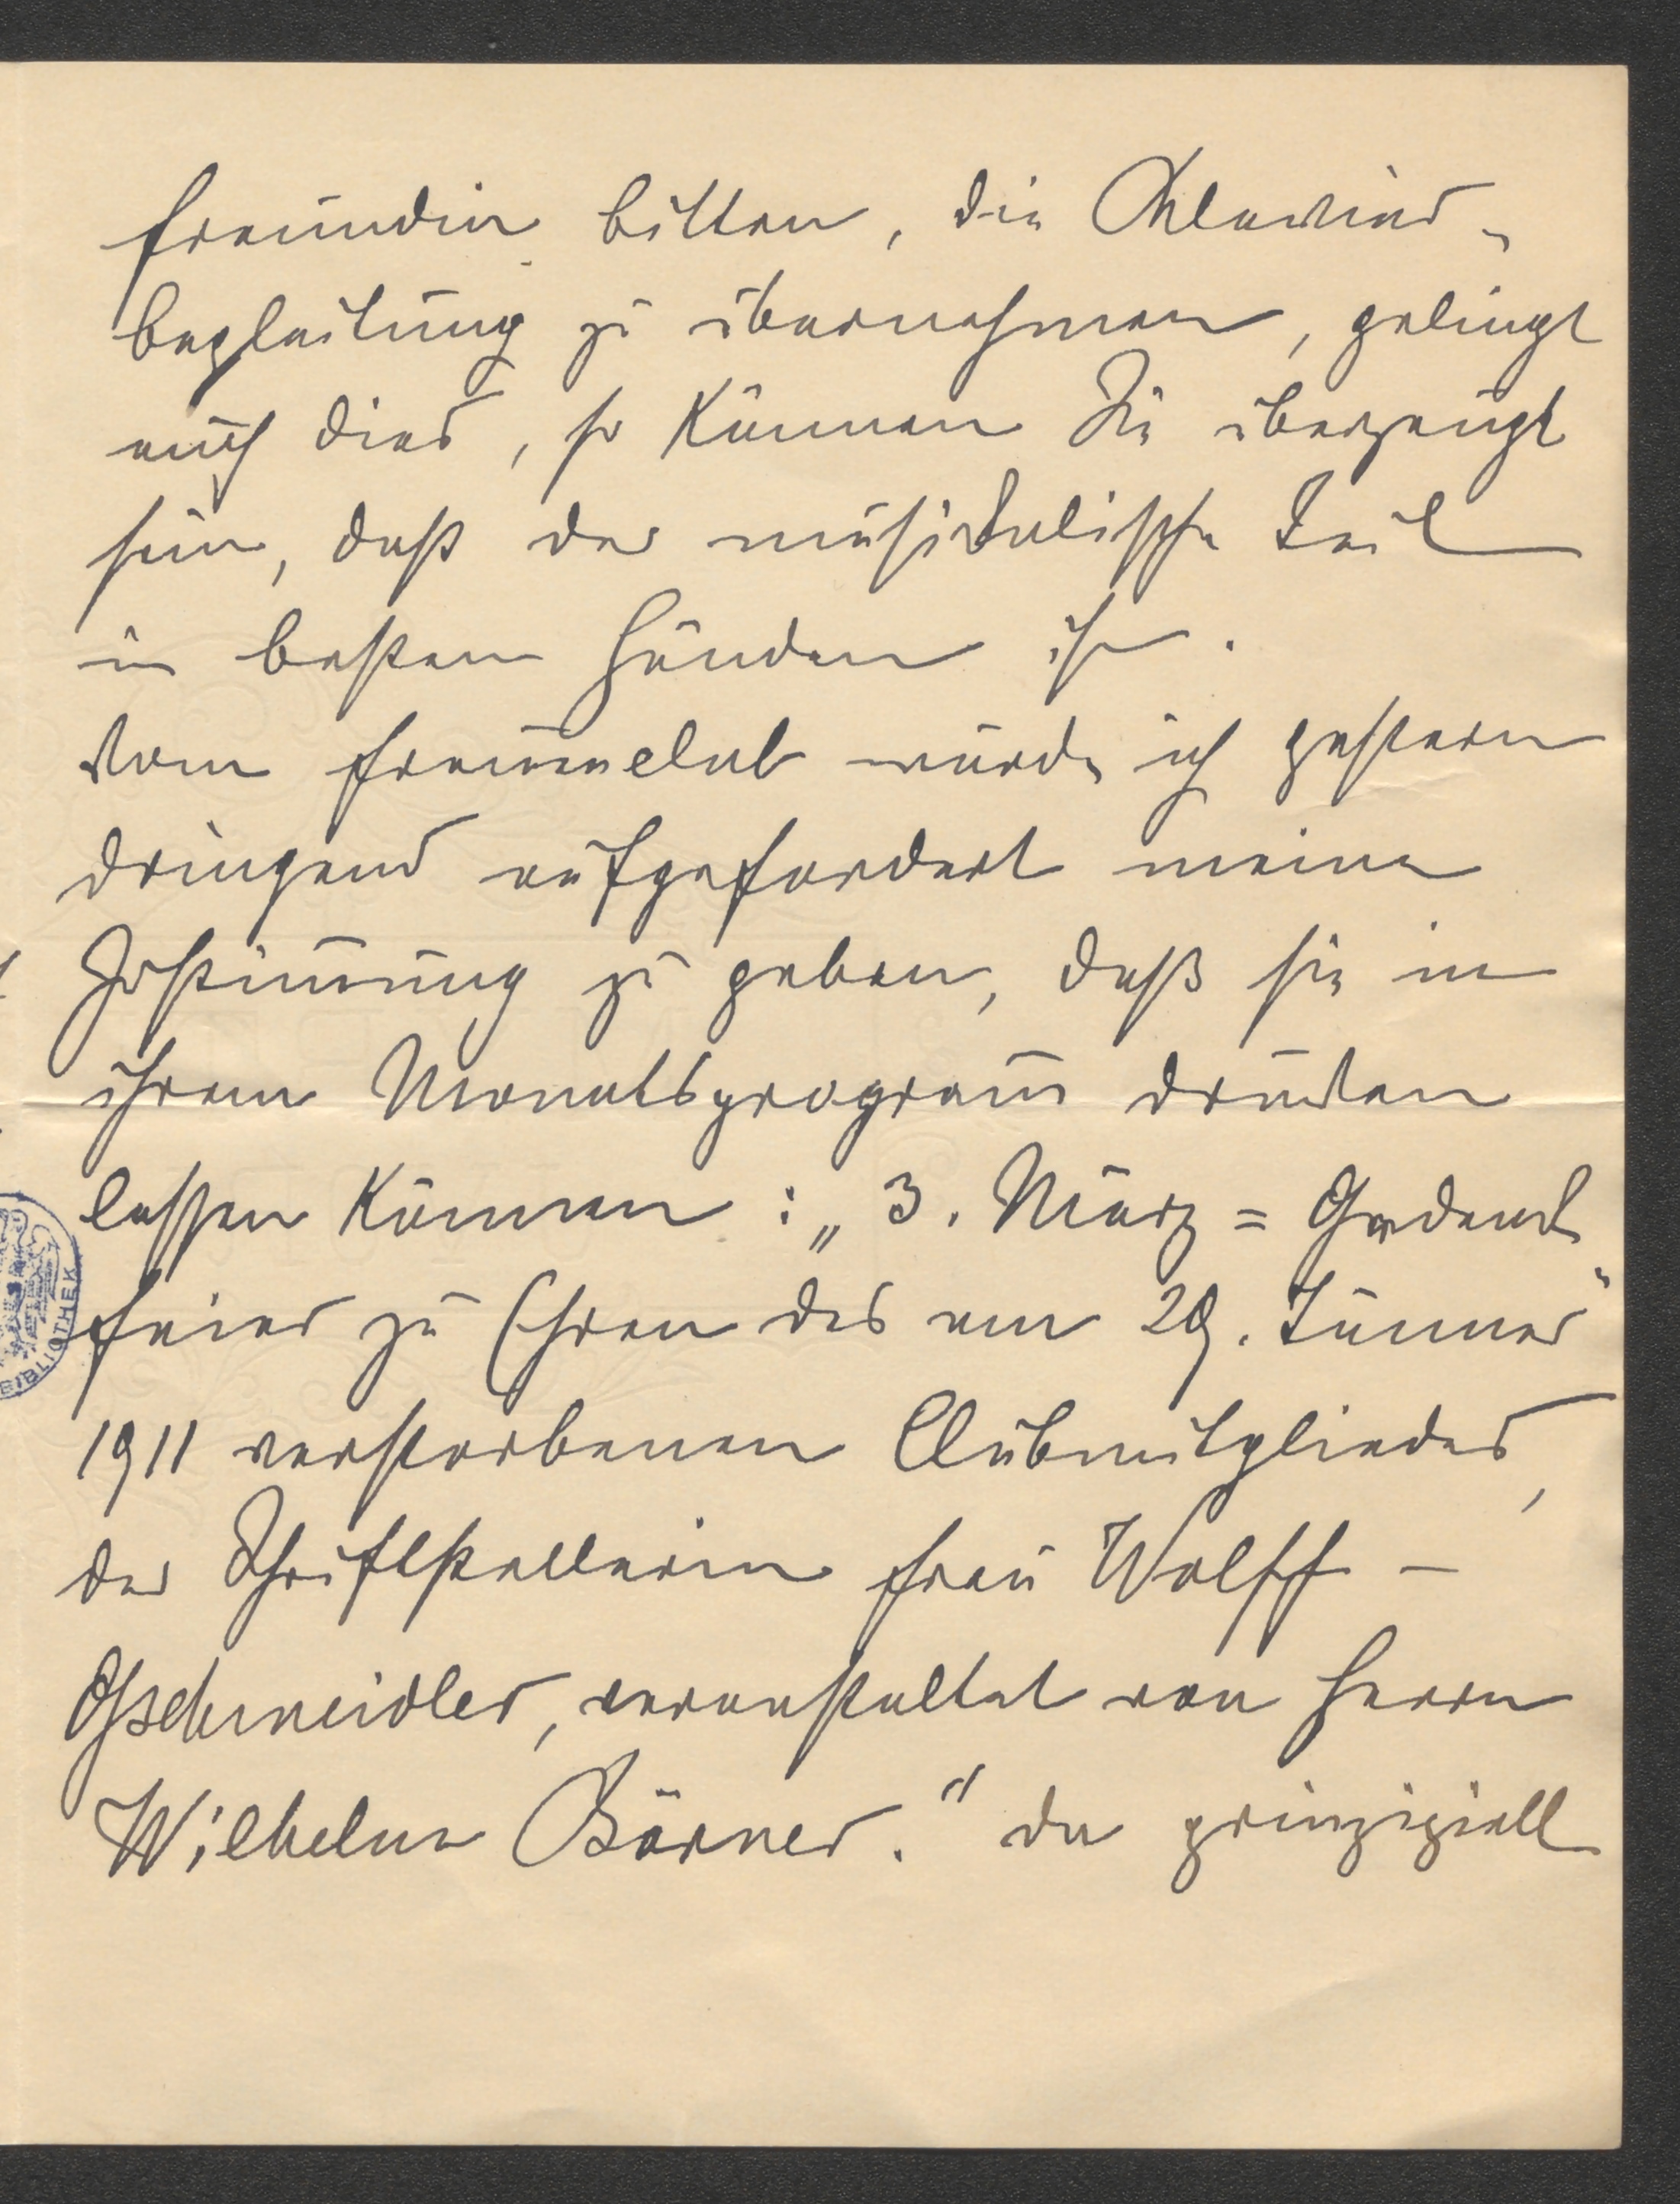 Freundin bitten, die Klavier-
begleitung zu übernehmen, gelingt
auch dies, so können Sie überzeugt
sein, daß der musikalische Teil
in besten Händen ist.
Vom Frauenclub wurde ich gestern
dringend aufgefordert meine
Zustimmung zu geben, daß sie in
ihrem Monatsprogram̅ drucken
lassen können: „3. März = Gedenk
feier zu Ehren des am 29. Jänner
1911 verstorbenen Clubmitgliedes,
der Schriftstellerin Frau Wolff -
Gschmeidler, veranstaltet von Herrn
Wilhelm Börner." Da prinzipiell
BIBLIOTHEK